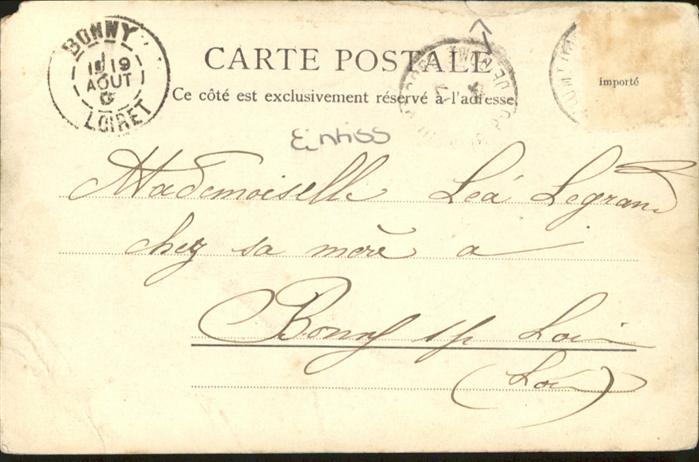 BONNY
19
AOUT
LOIRET
CARTE POSTALE
Ce côté est exclusivement réservé à l'adresse
importé
Einriss
Mademoiselle Leá Legrand
chez sa mère a
Bonny s/ Loi
(Loi)